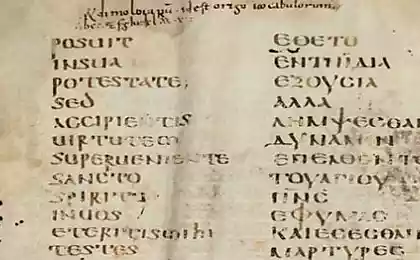 idest origo uocabulorum
POSUIT ΕΘΕΤΟ
INSUA ΕΝΤΗΙΔΙΑ
POTESTATE; ΕΞΟΥΣΙΑ
SED ΑΛΛΑ
ACCIPIENTIS ΛΗΜΨΕΣΘΑΙ
UIRTUTEM ΔΥΝΑΜΙΝ
SUPERUENIENTE ΕΠΕΛΘΕΝΤΟ
SANCTO ΤΟΥΑΓΙΟΥ
SPIRITU ΠΝΣ
INUOS ΕΦΥΜΑΣ
ETERITISMIHI ΚΑΙΕΣΕΘΑΙ
TESTES ΜΑΡΤΥΡΕΣ